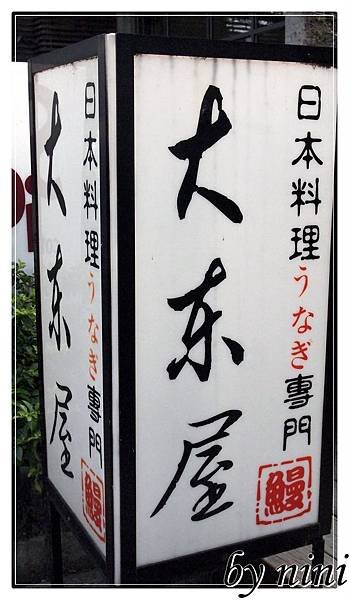 日本料理うなぎ專門
鰻
大东屋
日本料理うなぎ專門
鰻
大东屋
by nini